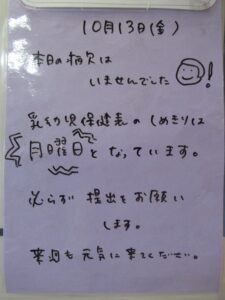 10月13日(金)
本日の病欠は
いませんでした !
乳幼児保健表のしめきりは
月曜日となっています。
必らず提出をお願い
します。
来週も元気に来てください。